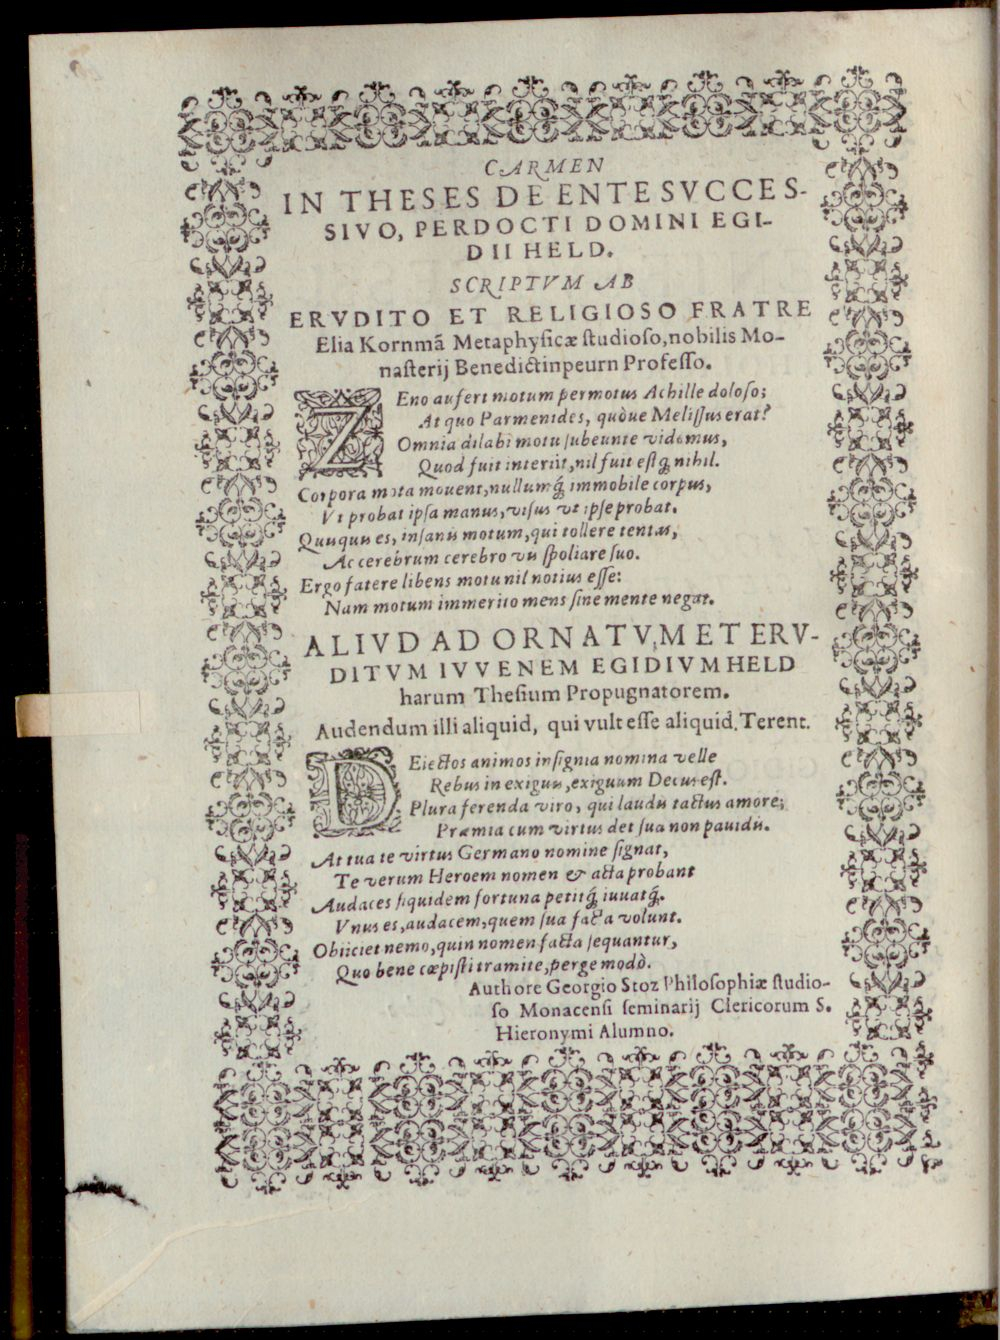 CARMEN
IN THESES DE ENTE SVCCES-
SIVO, PERDOCTI DOMINI EGI-
DII HELD.
SCRIPTVM AB
ERVDITO ET RELIGIOSO FRATRE
Elia Kornmā Metaphysicæ studioso, nobilis Mo-
nasterij Benedictinpeurn Professo.
ZEno aufert motum permotus Achille doloso;
At quo Parmenides, quòue Melissus erat?
Omnia dilabi motu subeunte videmus,
Quod fuit interiit, nil fuit estq́; nihil.
Corpora mota mouent, nullumq́; immobile corpus,
Vt probat ipsa manus, visus vt ipse probat.
Quisquis es, insanis motum, qui tollere tentas,
Ac cerebrum cerebro vis spoliare suo.
Ergo fatere libens motu nil notius esse:
Nam motum immerito mens sine mente negat.
ALIVD AD ORNATVM ET ERV-
DITVM IVVENEM EGIDIVM HELD
harum Thesium Propugnatorem.
Audendum illi aliquid, qui vult esse aliquid. Terent.
DEiectos animos insignia nomina velle
Rebus in exiguis, exiguum Decus est.
Plura ferenda viro, qui laudis tactus amore;
Præmia cum virtus det sua non pauidis.
At tua te virtus Germano nomine signat,
Te verum Heroem nomen & acta probant
Audaces siquidem fortuna petitq́; iuuatq́;.
Vnus es, audacem, quem sua facta volunt.
Obiiciet nemo, quin nomen facta sequantur,
Quo bene cœpisti tramite, perge modò.
Authore Georgio Stoz Philosophiæ studio-
so Monacensi seminarij Clericorum S.
Hieronymi Alumno.